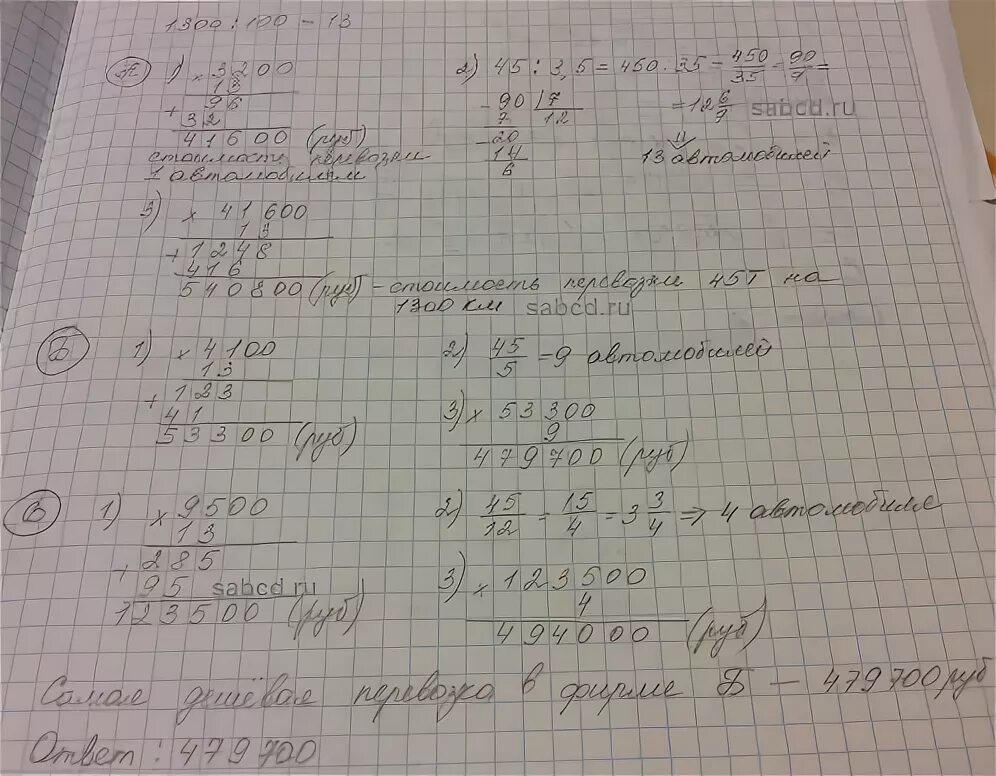 1300 : 100 = 13
А 1) × 3200
13
+ 96
32
41600 (руб)
стоимость перевозки
1 автомобилем
2) 45 : 3,5 = 450 : 35 = 450/35 = 90/7 =
- 90 | 7
7 12
- 20
14
6
= 12 6/7
13 автомобилей
3) × 41600
13
+ 1248
416
540800 (руб) – стоимость перевозки 45т на
1300 км
Б 1) × 4100
13
+ 123
41
53300 (руб)
2) 45/5 = 9 автомобилей
3) × 53300
9
479700 (руб)
В 1) × 9500
13
+ 285
95
123500 (руб)
2) 45/12 = 15/4 = 3 3/4 ⇒ 4 автомобиля
3) × 123500
4
494000 (руб)
Самая дешёвая перевозка в фирме Б – 479700 руб
Ответ : 479700
sabcd.ru
sabcd.ru
sabcd.ru